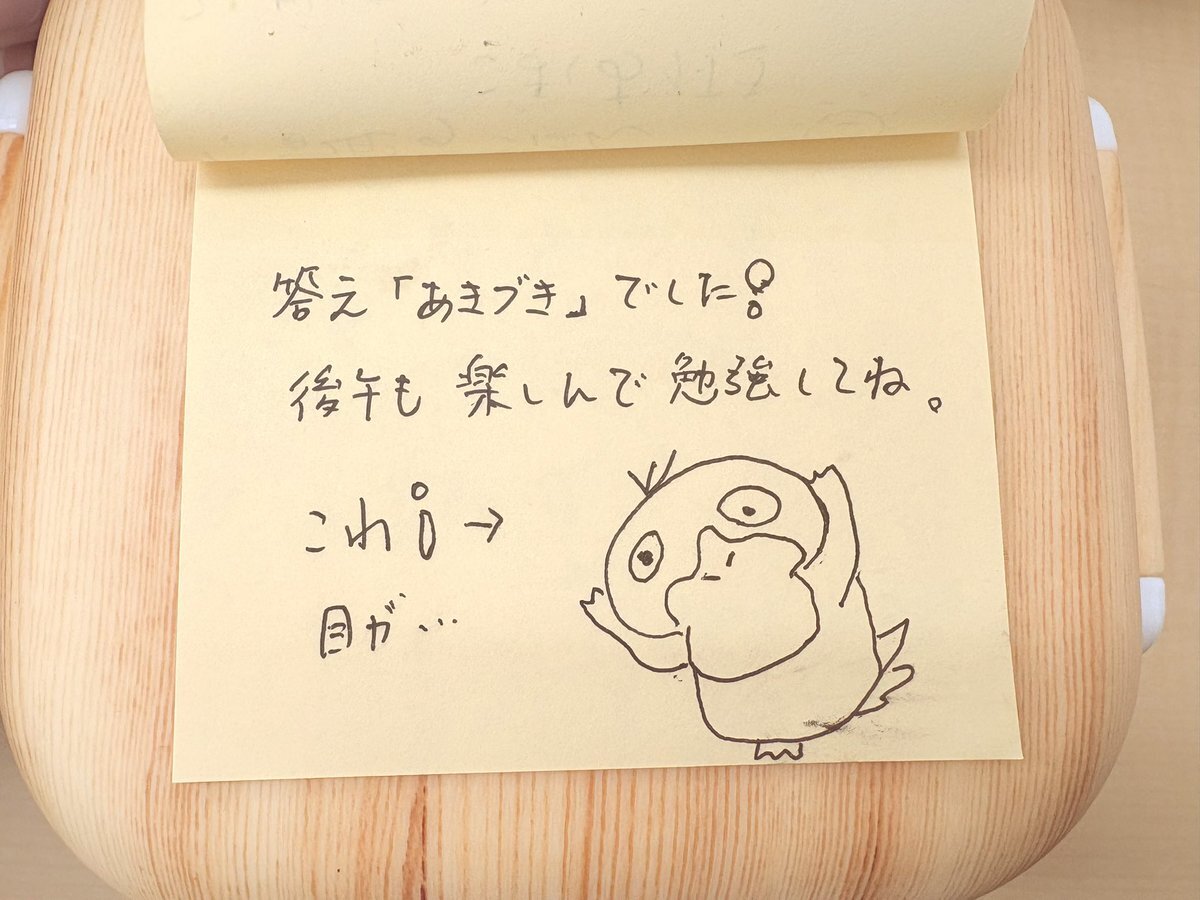 答え「あきづき」でした!
後午も 楽しんで 勉強してね。
これ¡→
目が…